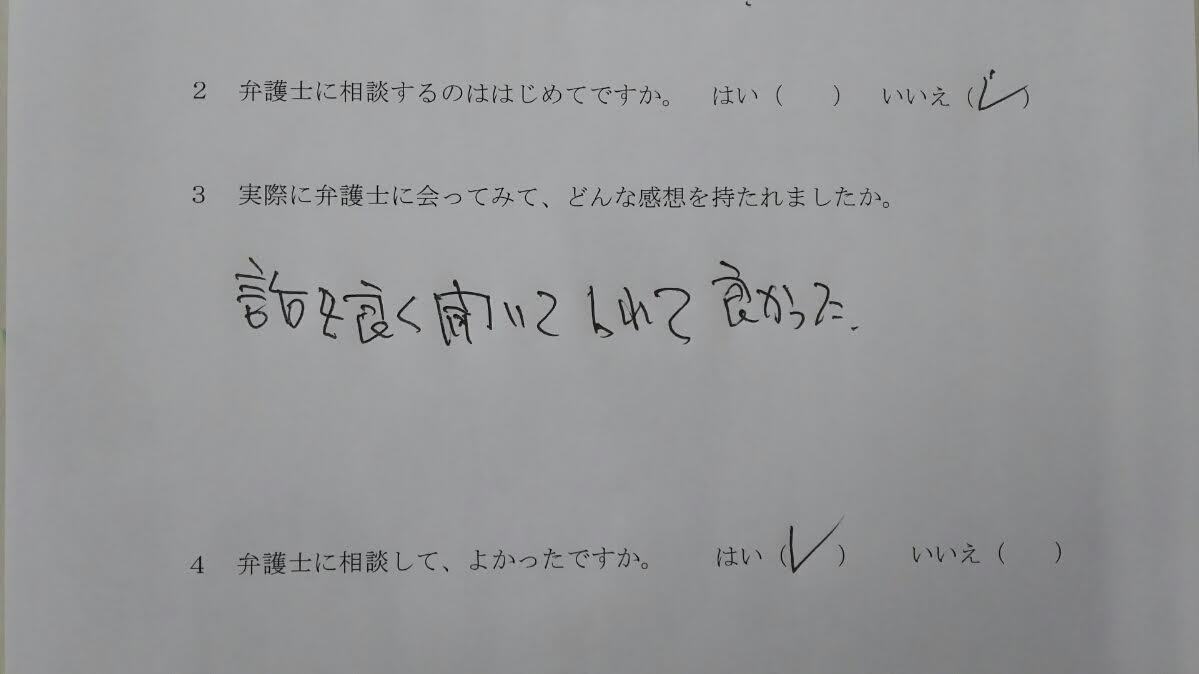 2 弁護士に相談するのははじめてですか。 はい（ ） いいえ（✓）
3 実際に弁護士に会ってみて、どんな感想を持たれましたか。
話を良く聞いてくれて良かった.
4 弁護士に相談して、よかったですか。 はい（✓） いいえ（ ）